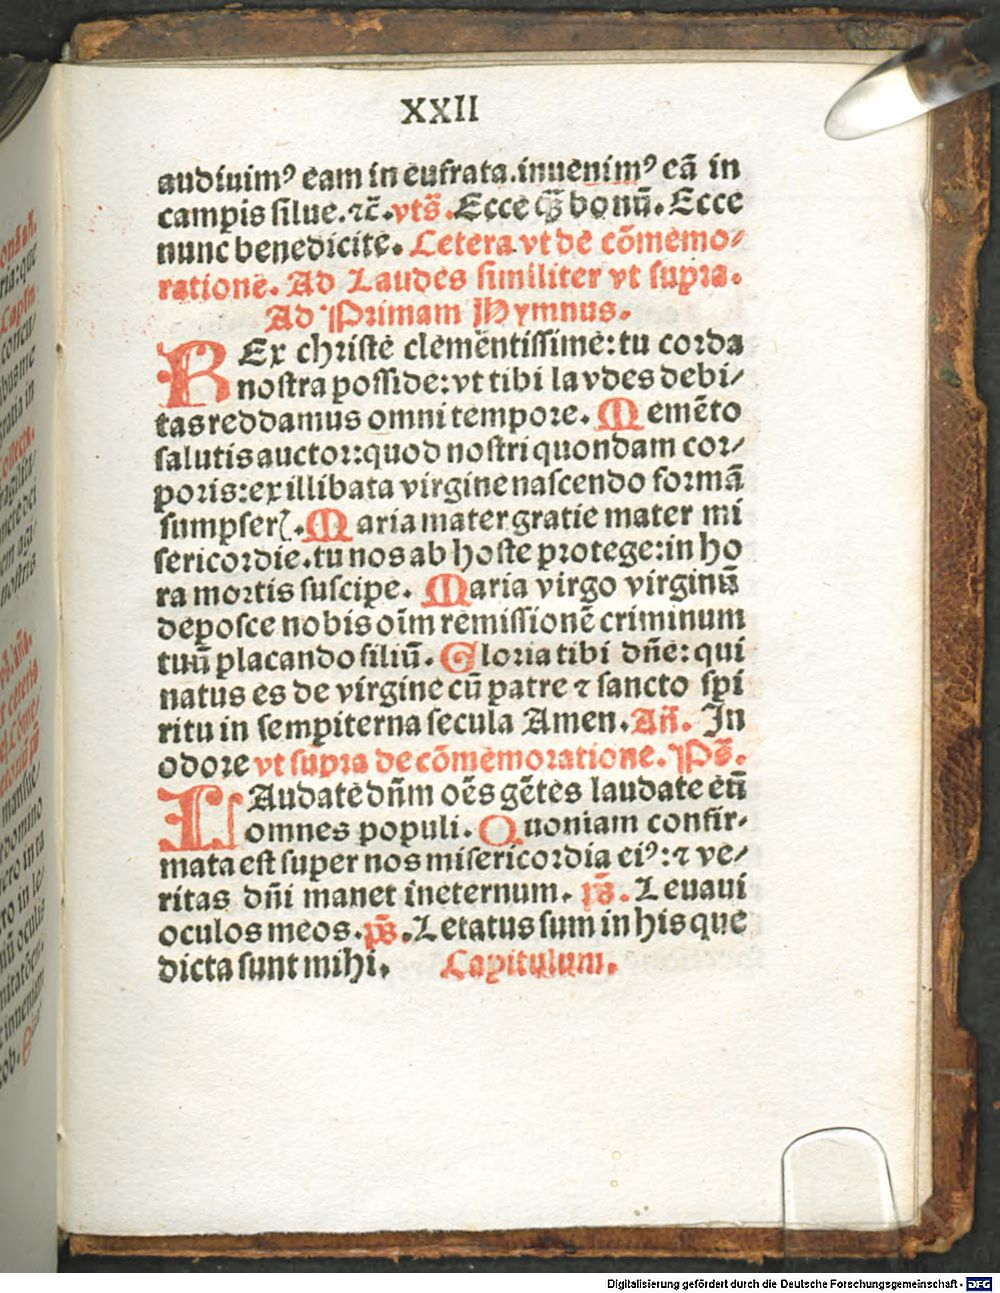 XXII
audiuimꝰ eam in eufrata.inuenimꝰ eā in
campis silue.⁊c̄.vts̄.Ecce q̄ꝫ bonū.Ecce
nunc benedicite. Cetera vt de cōmemo⸗
ratione. Ad Laudes similiter vt supra.
Ad Primam Hymnus.
REx christe clementissime:tu corda
nostra posside:vt tibi lavdes debi⸗
tas reddamus omni tempore. Memēto
salutis auctor:quod nostri quondam cor⸗
poris:ex illibata virgine nascendo formā
sumpserꝭ.Maria mater gratie mater mi
sericordie.tu nos ab hoste protege:in ho
ra mortis suscipe. Maria virgo virginū
deposce nobis oīm remissionē criminum
tuū placando filiū.Gloria tibi dn̄e:qui
natus es de virgine cū patre ⁊ sancto spi
ritu in sempiterna secula Amen.Añ. In
odore vt supra de cōmemoratione.Ps̄.
LAudate dn̄m oēs gētes laudate eū
omnes populi.Quoniam confir⸗
mata est super nos misericordia eiꝰ:⁊ ve⸗
ritas dn̄i manet ineternum. ps̄.Leuaui
oculos meos.ps̄.Letatus sum in his que
dicta sunt mihi. Capitulum.
Digitalisierung gefördert durch die Deutsche Forschungsgemeinschaft - DFG